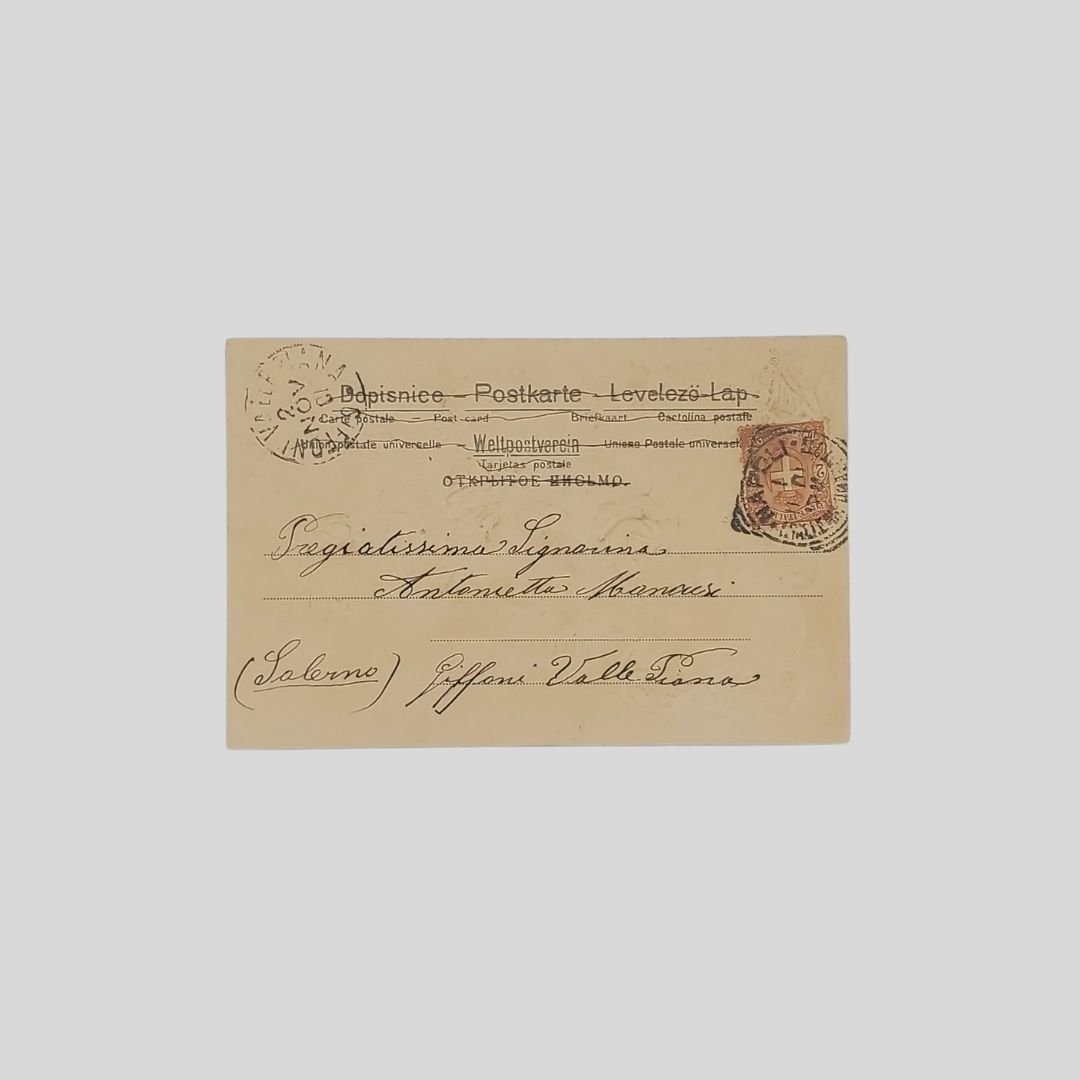 Dopisnice – Postkarte – Levelezö-Lap
Carte postale – Post-card Briefkaart – Cartolina postale
Union postale universelle Weltpostverein Unione Postale universale
Tarjetas postale
ОТКРЫТОЕ ПИСЬМО.
VALLE PIANA
NAPOLI
Pregiatissima Signorina
Antonietta Mancusi
(Salerno) Giffoni Valle Piana